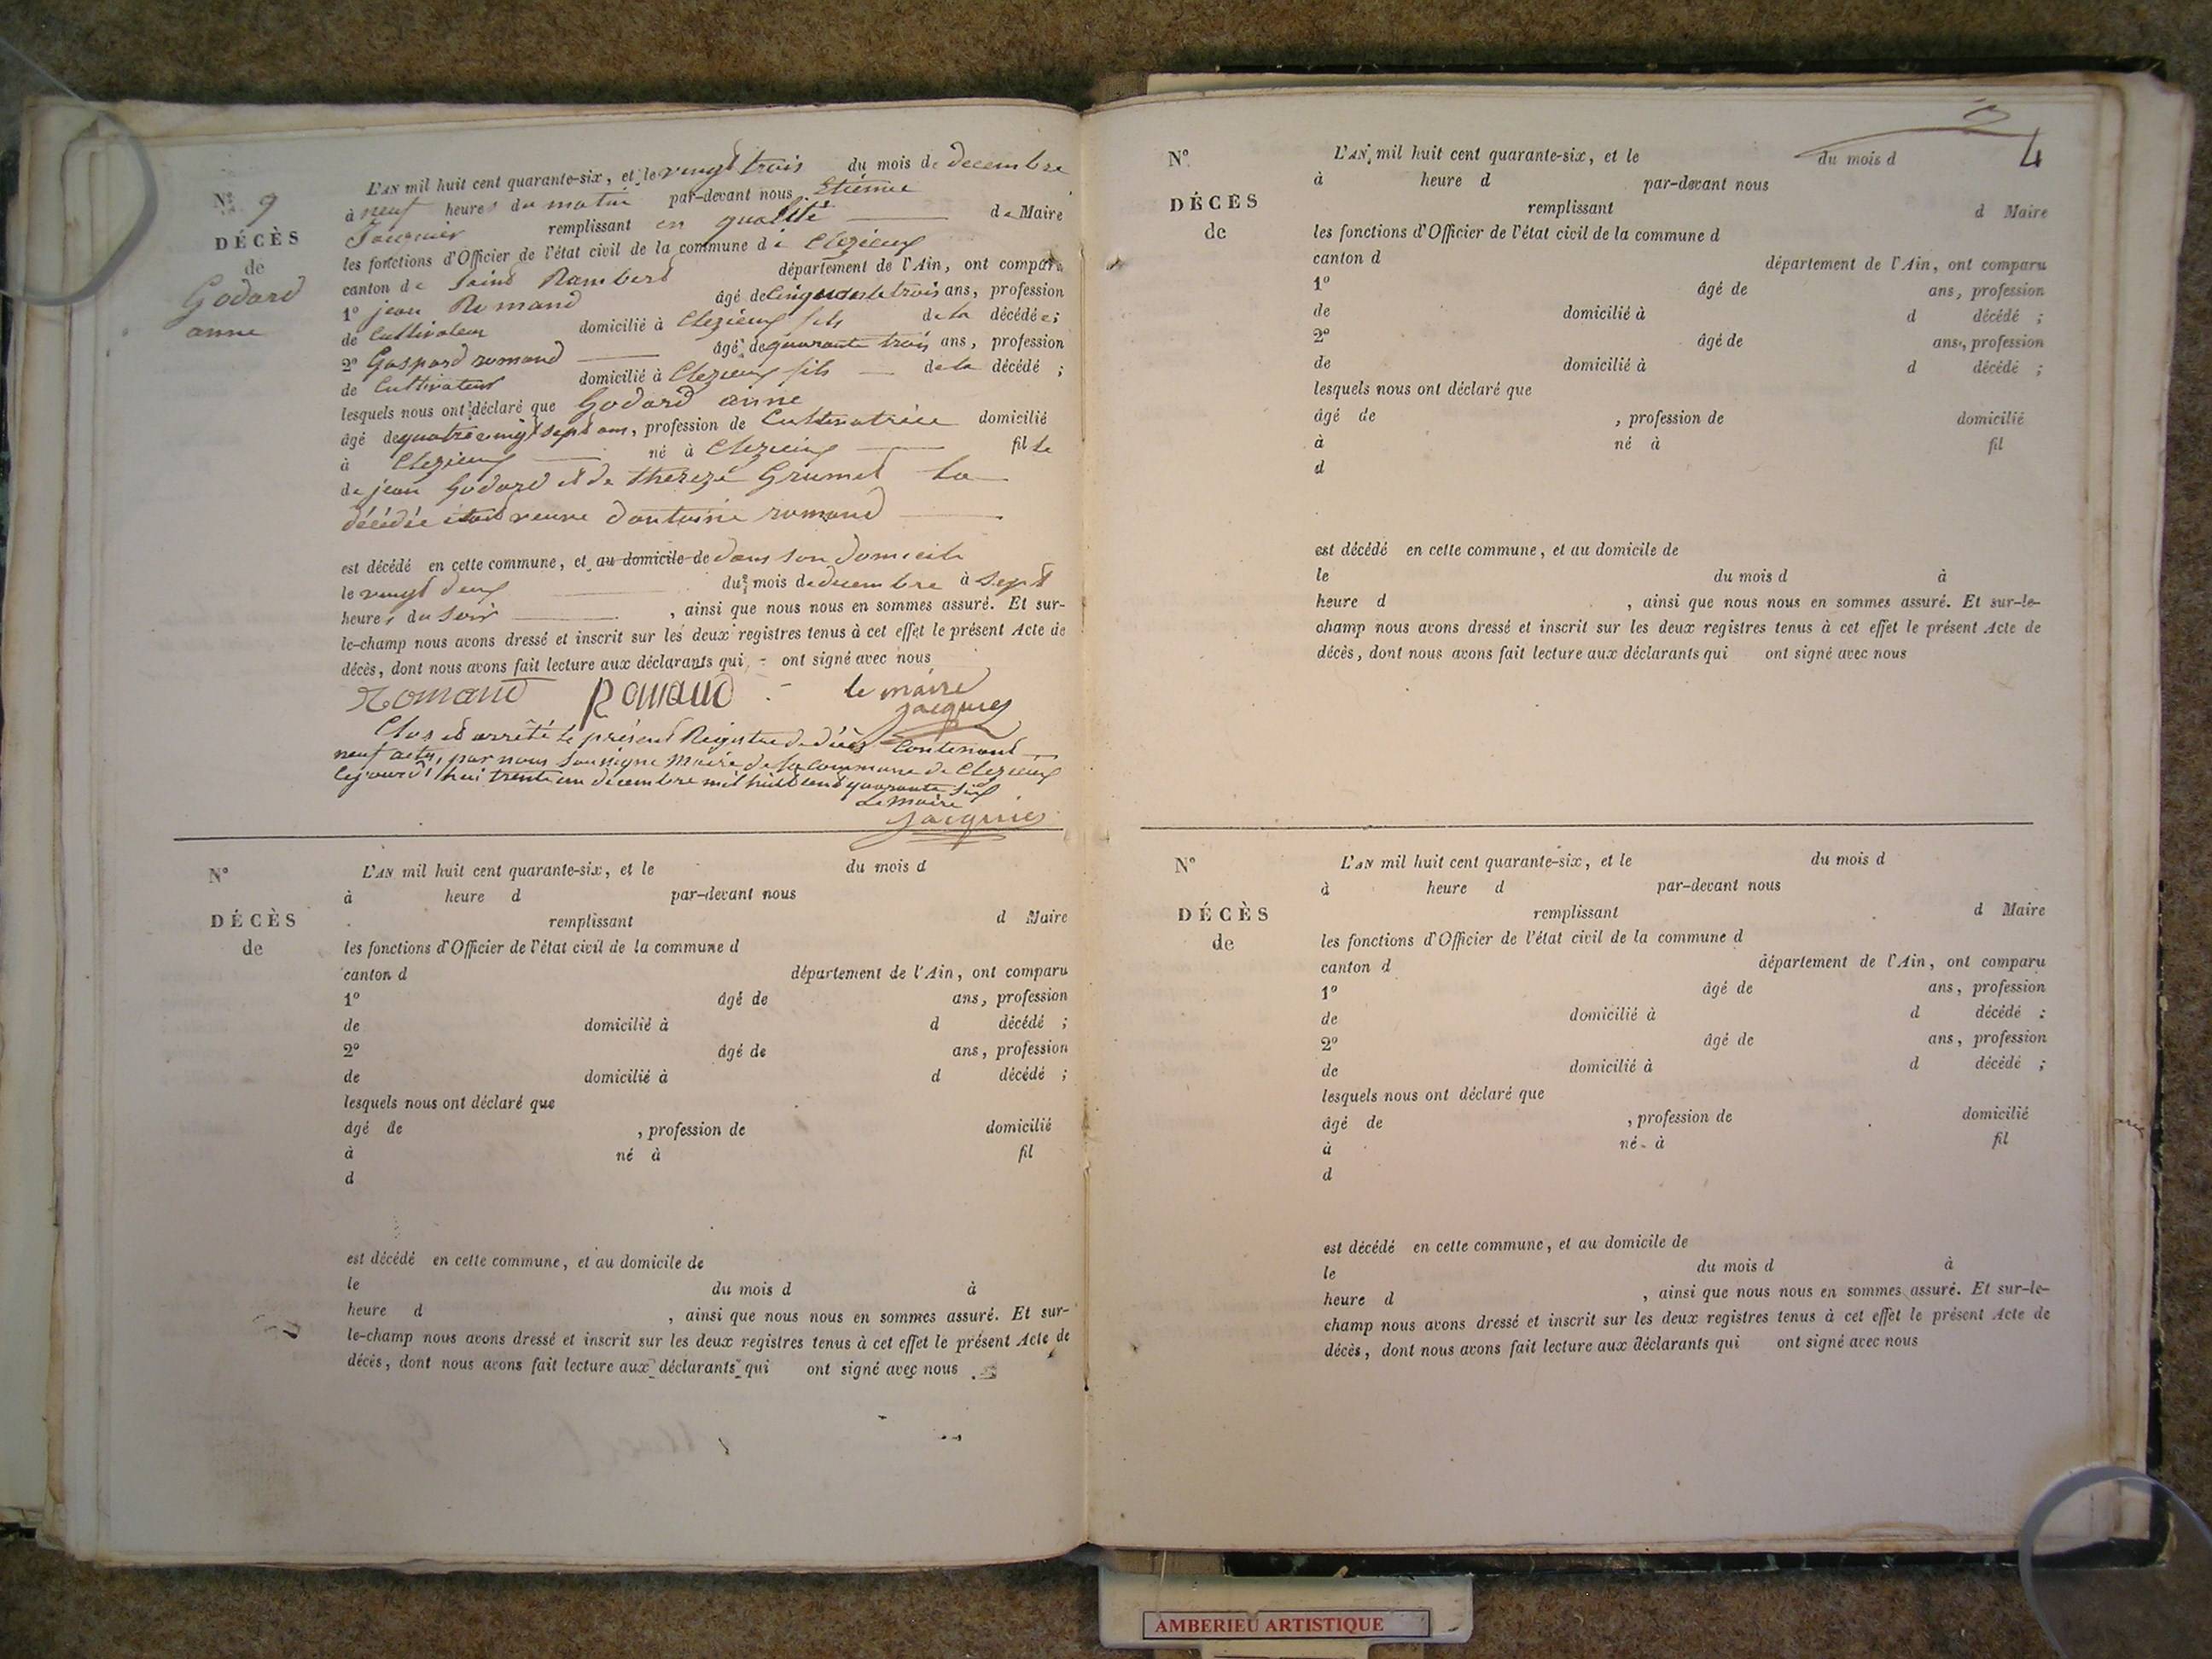 N° 9
DÉCÈS
de
Godard
anne
L'AN mil huit cent quarante-six, et le vingt trois du mois de decembre
à neuf heures du matin par-devant nous Etienne
remplissant en qualité de Maire
les fonctions d'Officier de l'état civil de la commune de Clezieux
canton de Saint Rambert département de l'Ain, ont comparu
1° jean Romand âgé de cinquante trois ans, profession
de Cultivateur domicilié à Clezieux fils de la décédée;
2° Gaspard romand âgé de quarante trois ans, profession
de Cultivateur domicilié à Clezieux fils de la décédé ;
lesquels nous ont déclaré que Godard anne
âgé de quatre vingt sept ans, profession de Cultivatrice domicilié
à Clezieux né à Clezieux fille
de jean Godard et de thereze Grumet la
décédée était veuve d'antoine romand
est décédé en cette commune, et au domicile de dans son domicile
le vingt deux du mois de decembre à sept
heures du soir , ainsi que nous nous en sommes assuré. Et sur-
le-champ nous avons dressé et inscrit sur les deux registres tenus à cet effet le présent Acte de
décès, dont nous avons fait lecture aux déclarants qui ont signé avec nous
Romand Romand le maire
Jacquies
Clos et arrêté le présent Registre de décès Contenant
neuf actes, par nous Soussigné Maire de la Commune de Clezieux
Cejourd'hui trente un décembre mil huit cent quarante six
Le Maire
Jacquies
N°
DÉCÈS
de
L'AN mil huit cent quarante-six, et le du mois d
à heure d par-devant nous
remplissant d Maire
les fonctions d'Officier de l'état civil de la commune d
canton d département de l'Ain, ont comparu
1° âgé de ans, profession
de domicilié à d décédé ;
2° âgé de ans, profession
de domicilié à d décédé ;
lesquels nous ont déclaré que
âgé de , profession de domicilié
à né à fil
d
est décédé en cette commune, et au domicile de
le du mois d à
heure d , ainsi que nous nous en sommes assuré. Et sur-
le-champ nous avons dressé et inscrit sur les deux registres tenus à cet effet le présent Acte de
décès, dont nous avons fait lecture aux déclarants qui ont signé avec nous
4
N°
DÉCÈS
de
L'AN mil huit cent quarante-six, et le du mois d
à heure d par-devant nous
remplissant d Maire
les fonctions d'Officier de l'état civil de la commune d
canton d département de l'Ain, ont comparu
1° âgé de ans, profession
de domicilié à d décédé ;
2° âgé de ans, profession
de domicilié à d décédé ;
lesquels nous ont déclaré que
âgé de , profession de domicilié
à né à fil
d
est décédé en cette commune, et au domicile de
le du mois d à
heure d , ainsi que nous nous en sommes assuré. Et sur-le-
champ nous avons dressé et inscrit sur les deux registres tenus à cet effet le présent Acte de
décès, dont nous avons fait lecture aux déclarants qui ont signé avec nous
N°
DÉCÈS
de
L'AN mil huit cent quarante-six, et le du mois d
à heure d par-devant nous
remplissant d Maire
les fonctions d'Officier de l'état civil de la commune d
canton d département de l'Ain, ont comparu
1° âgé de ans, profession
de domicilié à d décédé ;
2° âgé de ans, profession
de domicilié à d décédé ;
lesquels nous ont déclaré que
âgé de , profession de domicilié
à né à fil
d
est décédé en cette commune, et au domicile de
le du mois d à
heure d , ainsi que nous nous en sommes assuré. Et sur-le-
champ nous avons dressé et inscrit sur les deux registres tenus à cet effet le présent Acte de
décès, dont nous avons fait lecture aux déclarants qui ont signé avec nous
AMBERIEU ARTISTIQUE